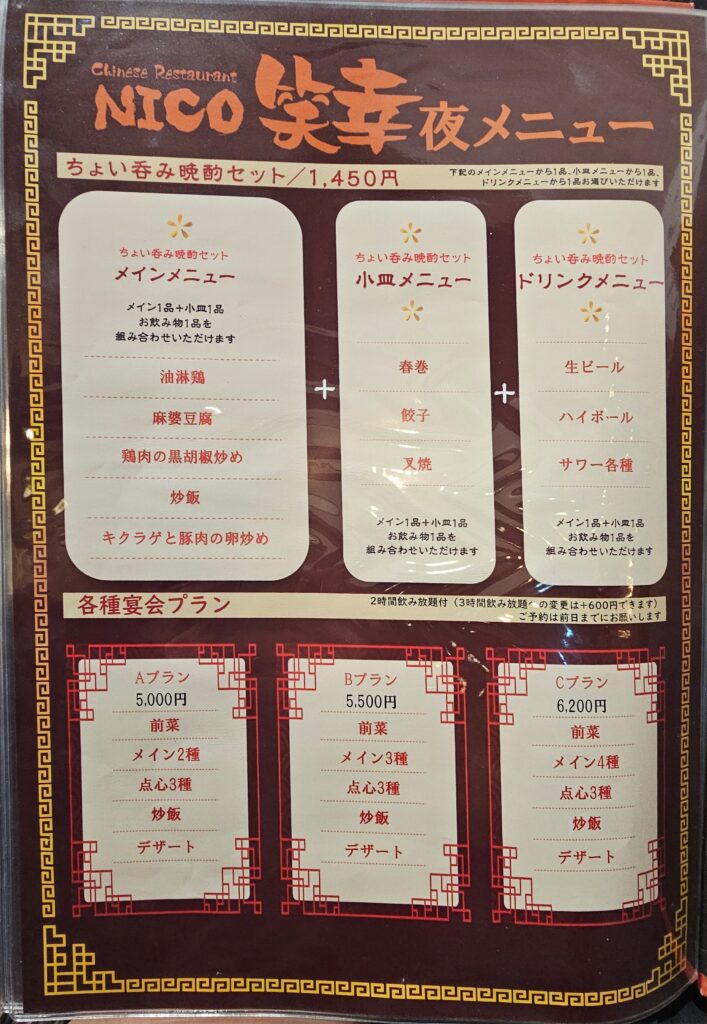 Chinese Restaurant
NICO 笑幸 夜メニュー
ちょい呑み晩酌セット/1,450円
下記のメインメニューから1品、小皿メニューから1品、
ドリンクメニューから1品お選びいただけます
ちょい呑み晩酌セット
メインメニュー
メイン1品+小皿1品
お飲み物1品を
組み合わせいただけます
油淋鶏
麻婆豆腐
鶏肉の黒胡椒炒め
炒飯
キクラゲと豚肉の卵炒め
+
ちょい呑み晩酌セット
小皿メニュー
春巻
餃子
叉焼
メイン1品+小皿1品
お飲み物1品を
組み合わせいただけます
+
ちょい呑み晩酌セット
ドリンクメニュー
生ビール
ハイボール
サワー各種
メイン1品+小皿1品
お飲み物1品を
組み合わせいただけます
各種宴会プラン
2時間飲み放題付(3時間飲み放題への変更は+600円できます)
ご予約は前日までにお願いします
Aプラン
5,000円
前菜
メイン2種
点心3種
炒飯
デザート
Bプラン
5,500円
前菜
メイン3種
点心3種
炒飯
デザート
Cプラン
6,200円
前菜
メイン4種
点心3種
炒飯
デザート